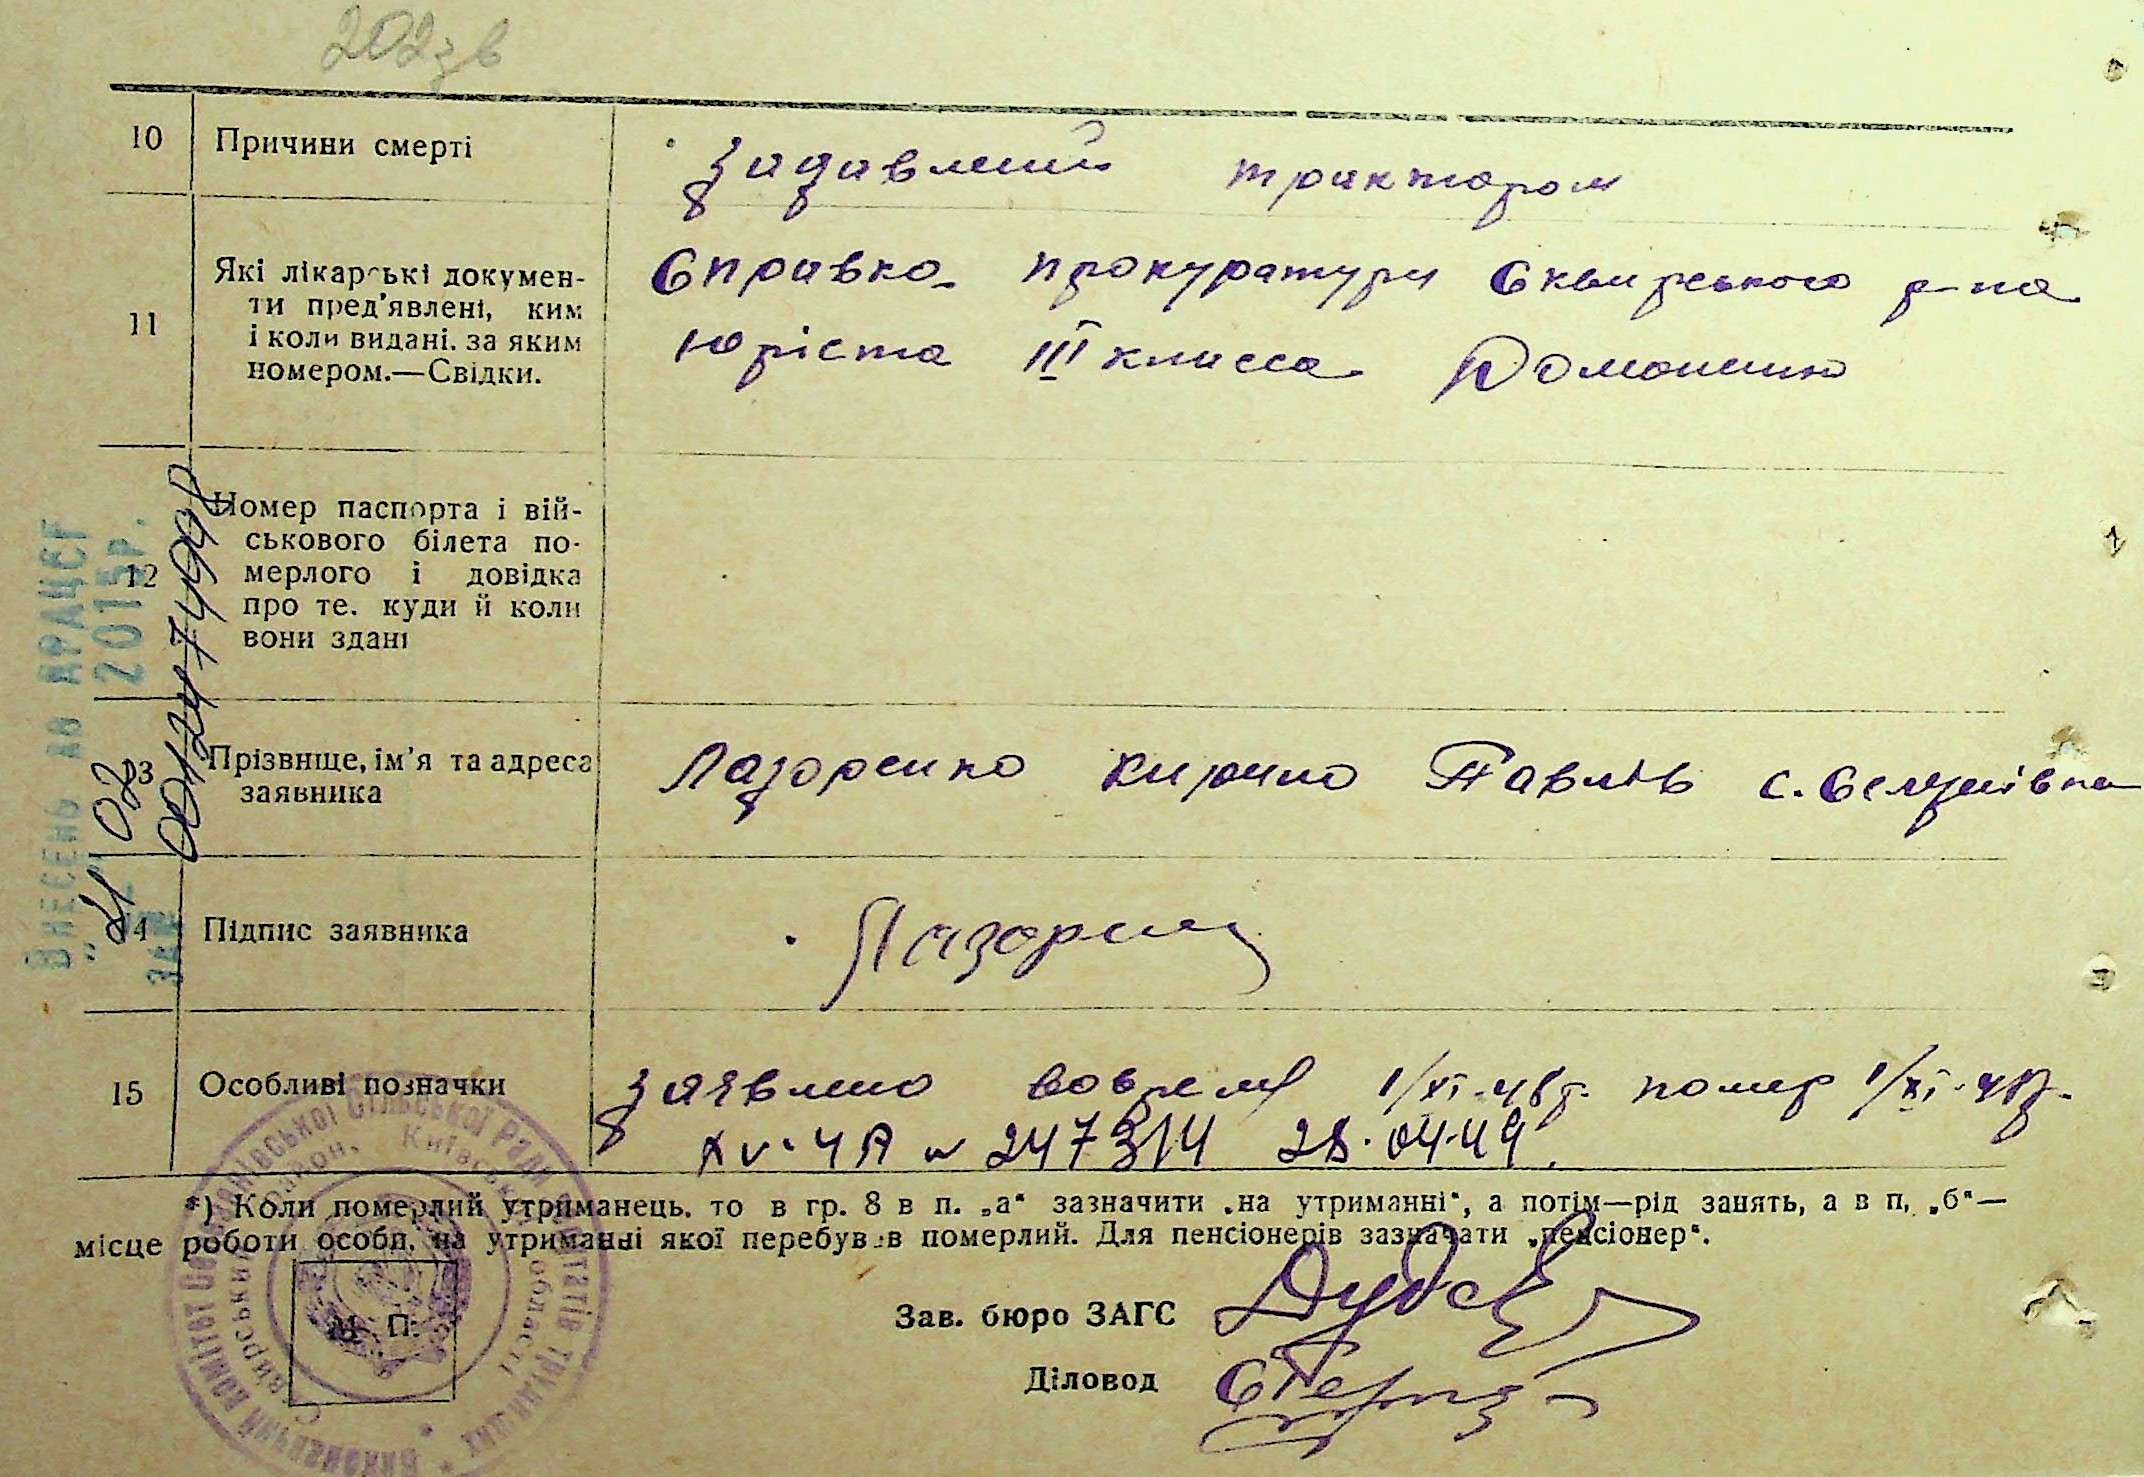 202зв
10 Причини смерті
задавлений трактором
11 Які лікарські докумен-
ти пред'явлені, ким
і коли видані. за яким
номером.—Свідки.
Справка прокуратури Сквирського р-на
юріста III класса
12 Номер паспорта і вій-
ськового білета по-
мерлого і довідка
про те. куди й коли
вони здані
13 Прізвище, ім'я та адреса
заявника
Лазоренко Кирило Павлів с.
14 Підпис заявника
15 Особливі позначки
заявлено вовремя 1/XI-48р. помер 1/XI-48р.
№ 247314 28.04.49
*) Коли померлий утриманець. то в гр. 8 в п. „а" зазначити „на утриманні", а потім—рід занять, а в п, „б"—
місце роботи особи, на утриманні якої перебував померлий. Для пенсіонерів зазначати „пенсіонер".
Зав. бюро ЗАГС
Діловод
М. П.
Внесень до ДРАЦСГ
„21" 02 2015р.
ЗА №
Сільської Ради депутатів трудящих
Сквирський район, Київської області